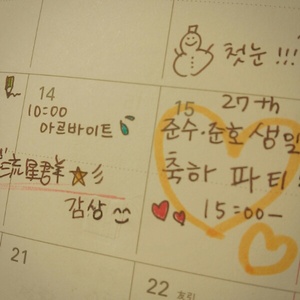 첫눈 !!!
14
10:00
아르바이트
流星群
감상
15 27th
준수·준호 생일
축하 파티
15:00-
21
22 友引